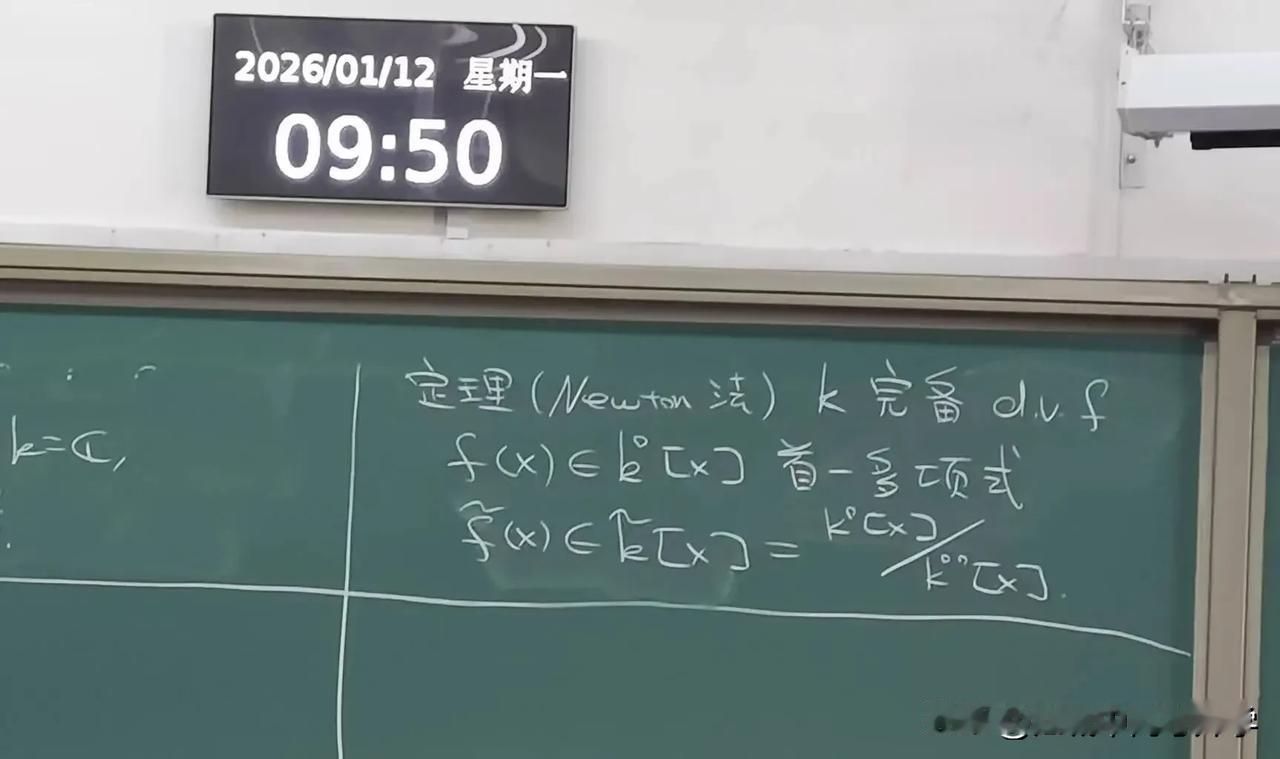 2026/01/12 星期一
09:50
k=ℂ,
定理(Newton 法) k 完备 d.v.f
f(x)∈k°[x] 首一多项式
f̃(x)∈k̃[x]=k°[x]/k°°[x].